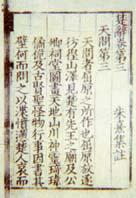 楚辭卷第三
朱熹集註
天問第三
天問者屈原之所作也屈原放逐
彷徨山澤見楚有先王之廟及公
卿祠堂圖畫天地山川神靈琦瑋
僪佹及古賢聖怪物行事因書其
壁何而問之以渫憤懣楚人哀而